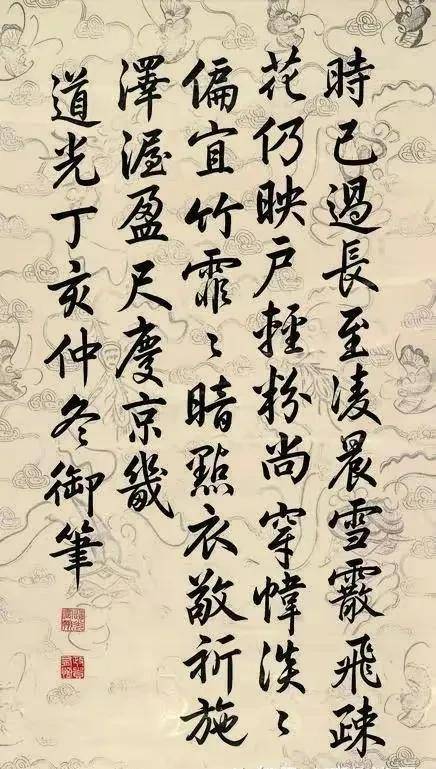 時已過長至凌晨雪霰飛疎
花仍映戶輕粉尚穿幃淡〻
偏宜竹霏〻暗點衣敬祈施
澤渥盈尺慶京畿
道光丁亥仲冬御筆